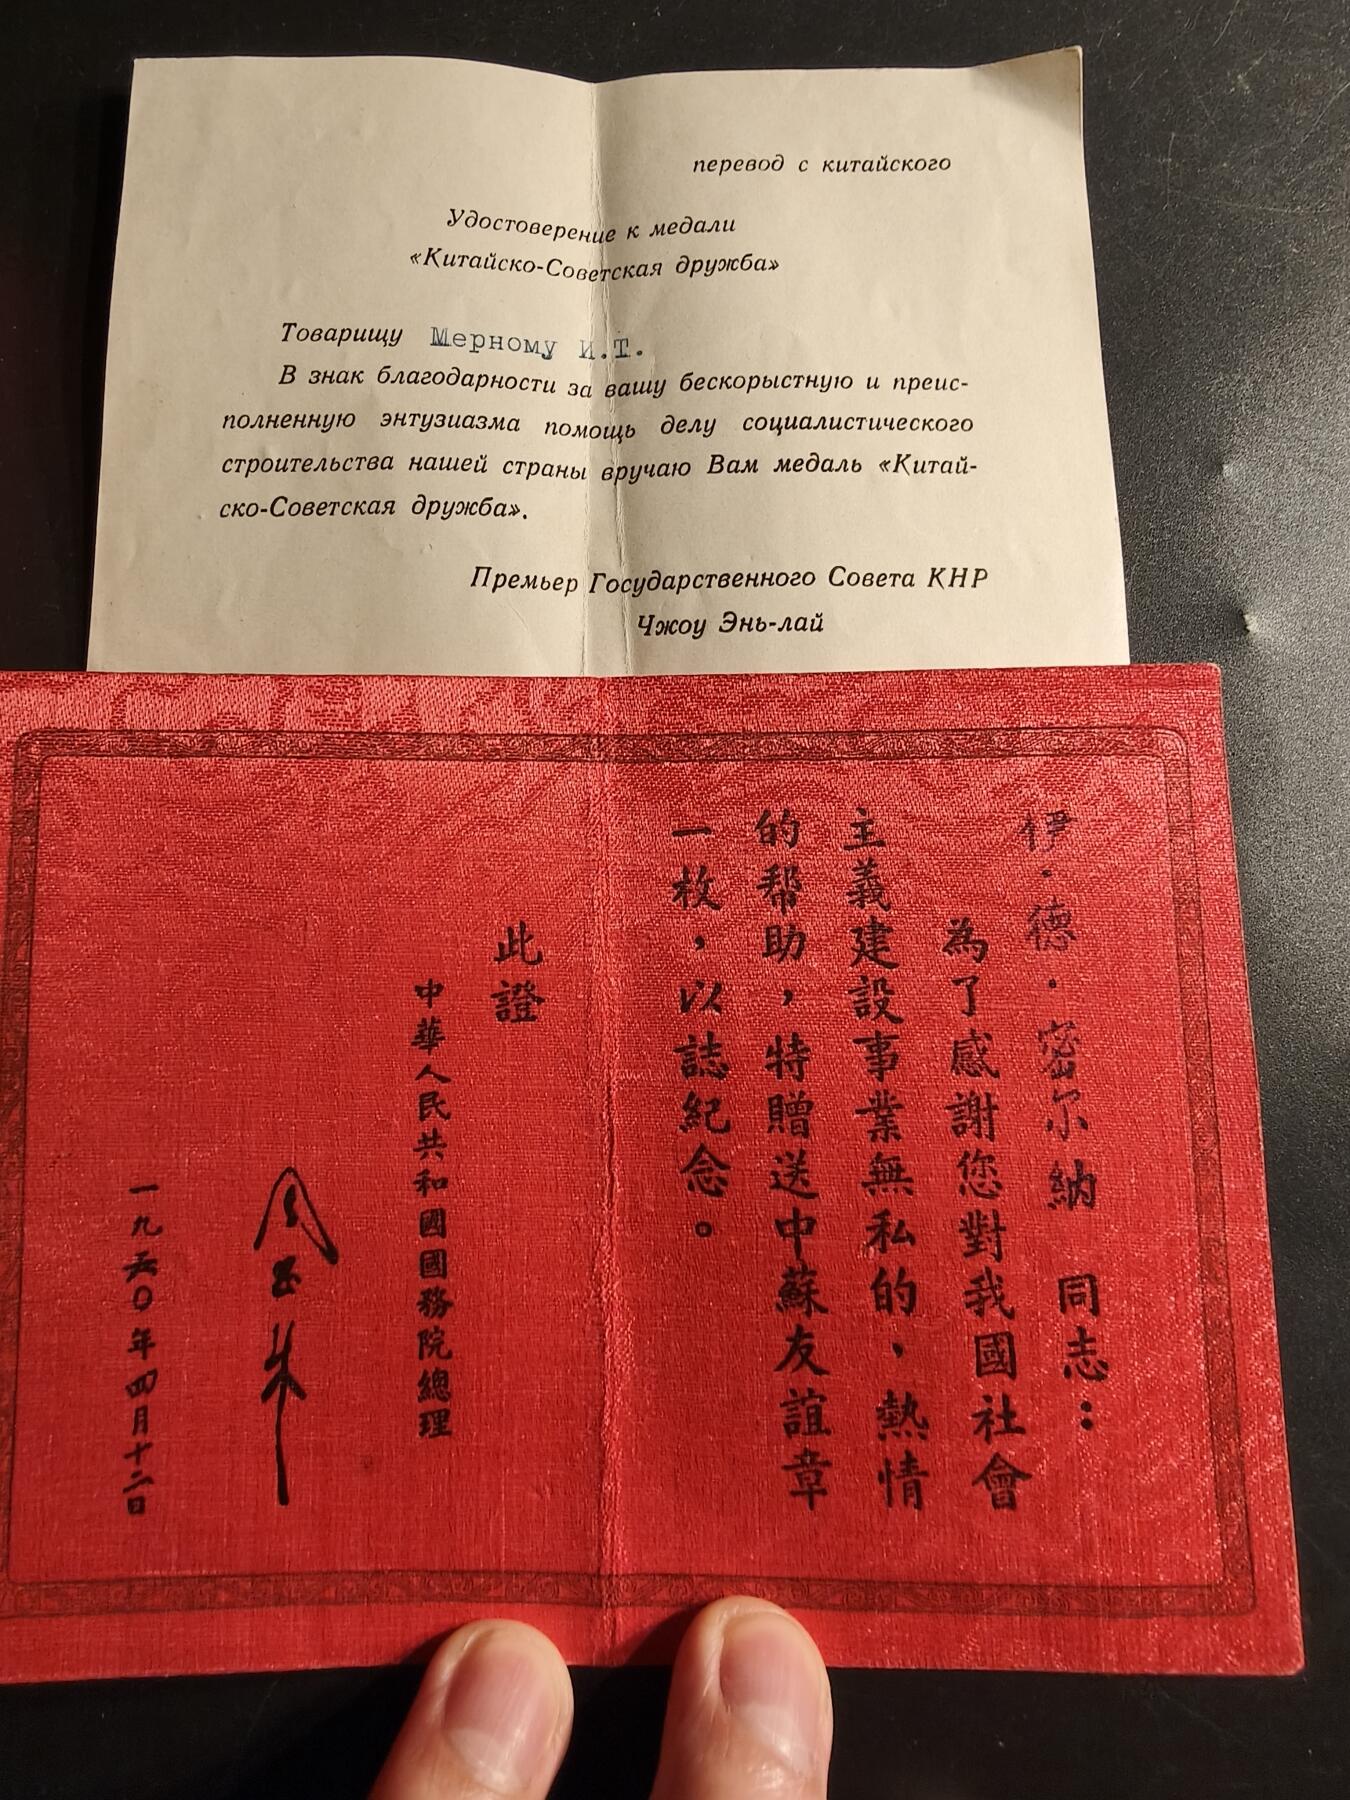 перевод с китайского
Удостоверение к медали
«Китайско-Советская дружба»
Товарищу Мерному И.Т.
В знак благодарности за вашу бескорыстную и преис-
полненную энтузиазма помощь делу социалистического
строительства нашей страны вручаю Вам медаль «Китай-
ско-Советская дружба».
Премьер Государственного Совета КНР
Чжоу Энь-лай
伊·德·密尔納 同志：
為了感謝您對我國社會
主義建設事業無私的，熱情
的帮助，特贈送中蘇友誼章
一枚，以誌紀念。
此證
中華人民共和國國務院總理
周恩来
一九五〇年四月十二日